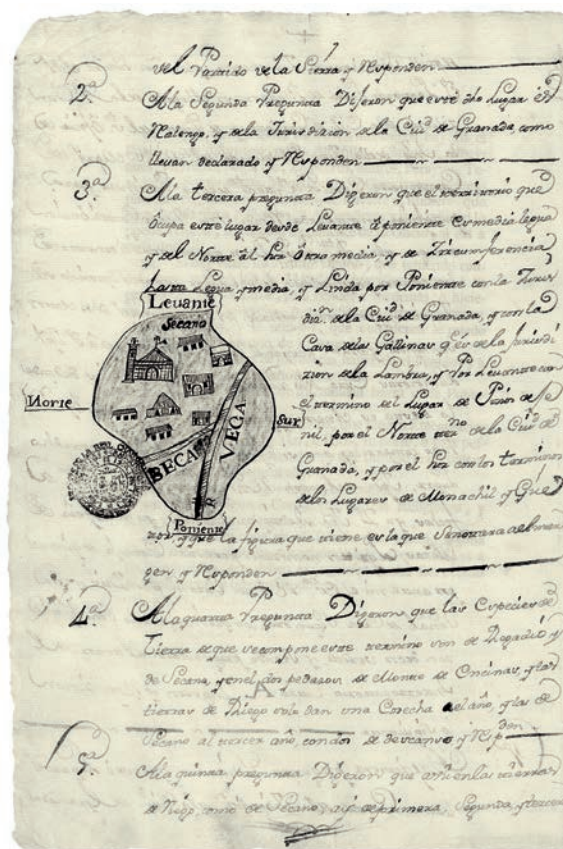 del Partido de la Sierra y Responden
2ª A la Segunda Pregunta Dijeron que este dho Lugar es
Realengo, y de la Jurisdizion de la Ciud de Granada, como
llevan declarado y Responden
3ª A la tercera pregunta Digeron que el territorio que
Ocupa este lugar desde Levante à poniente es media legua
y del Norte al Sur ôtra media, y de Zircumferencia
Legua y media, y Linda por Poniente con la Juris
dizn. de la Ciud de Granada, y con la
Casa de las Gallinas qe es de la Jurisdi
zion de la Lambra, y Por Levante con
el termino del Lugar de Pinos de Je
nil, por el Norte termno de la Ciud de
Granada, y por el Sur con los terminos
de los Lugares de Monachil y Gue
xar, y que la figura que tiene es la que Semostrara al mar
gen y Responden
Levante
Secano
Norte
Sur
BECA
VEGA
R
Poniente
4ª A la quarta Pregunta Digeron que las Especies de
Tierra de que se compone este termino son de Regadio y
de Secano, y en el, dos pedasos de Monte de Encinas, y las
tierras de Riego solo dan una Cosecha al año, y las de
Secano al tercer año, con dos de descanso y Respden
5ª A la quinta pregunta Digeron que asi en las tierras
de Riego, como de Secano, ay de primera, Segunda, y tercera